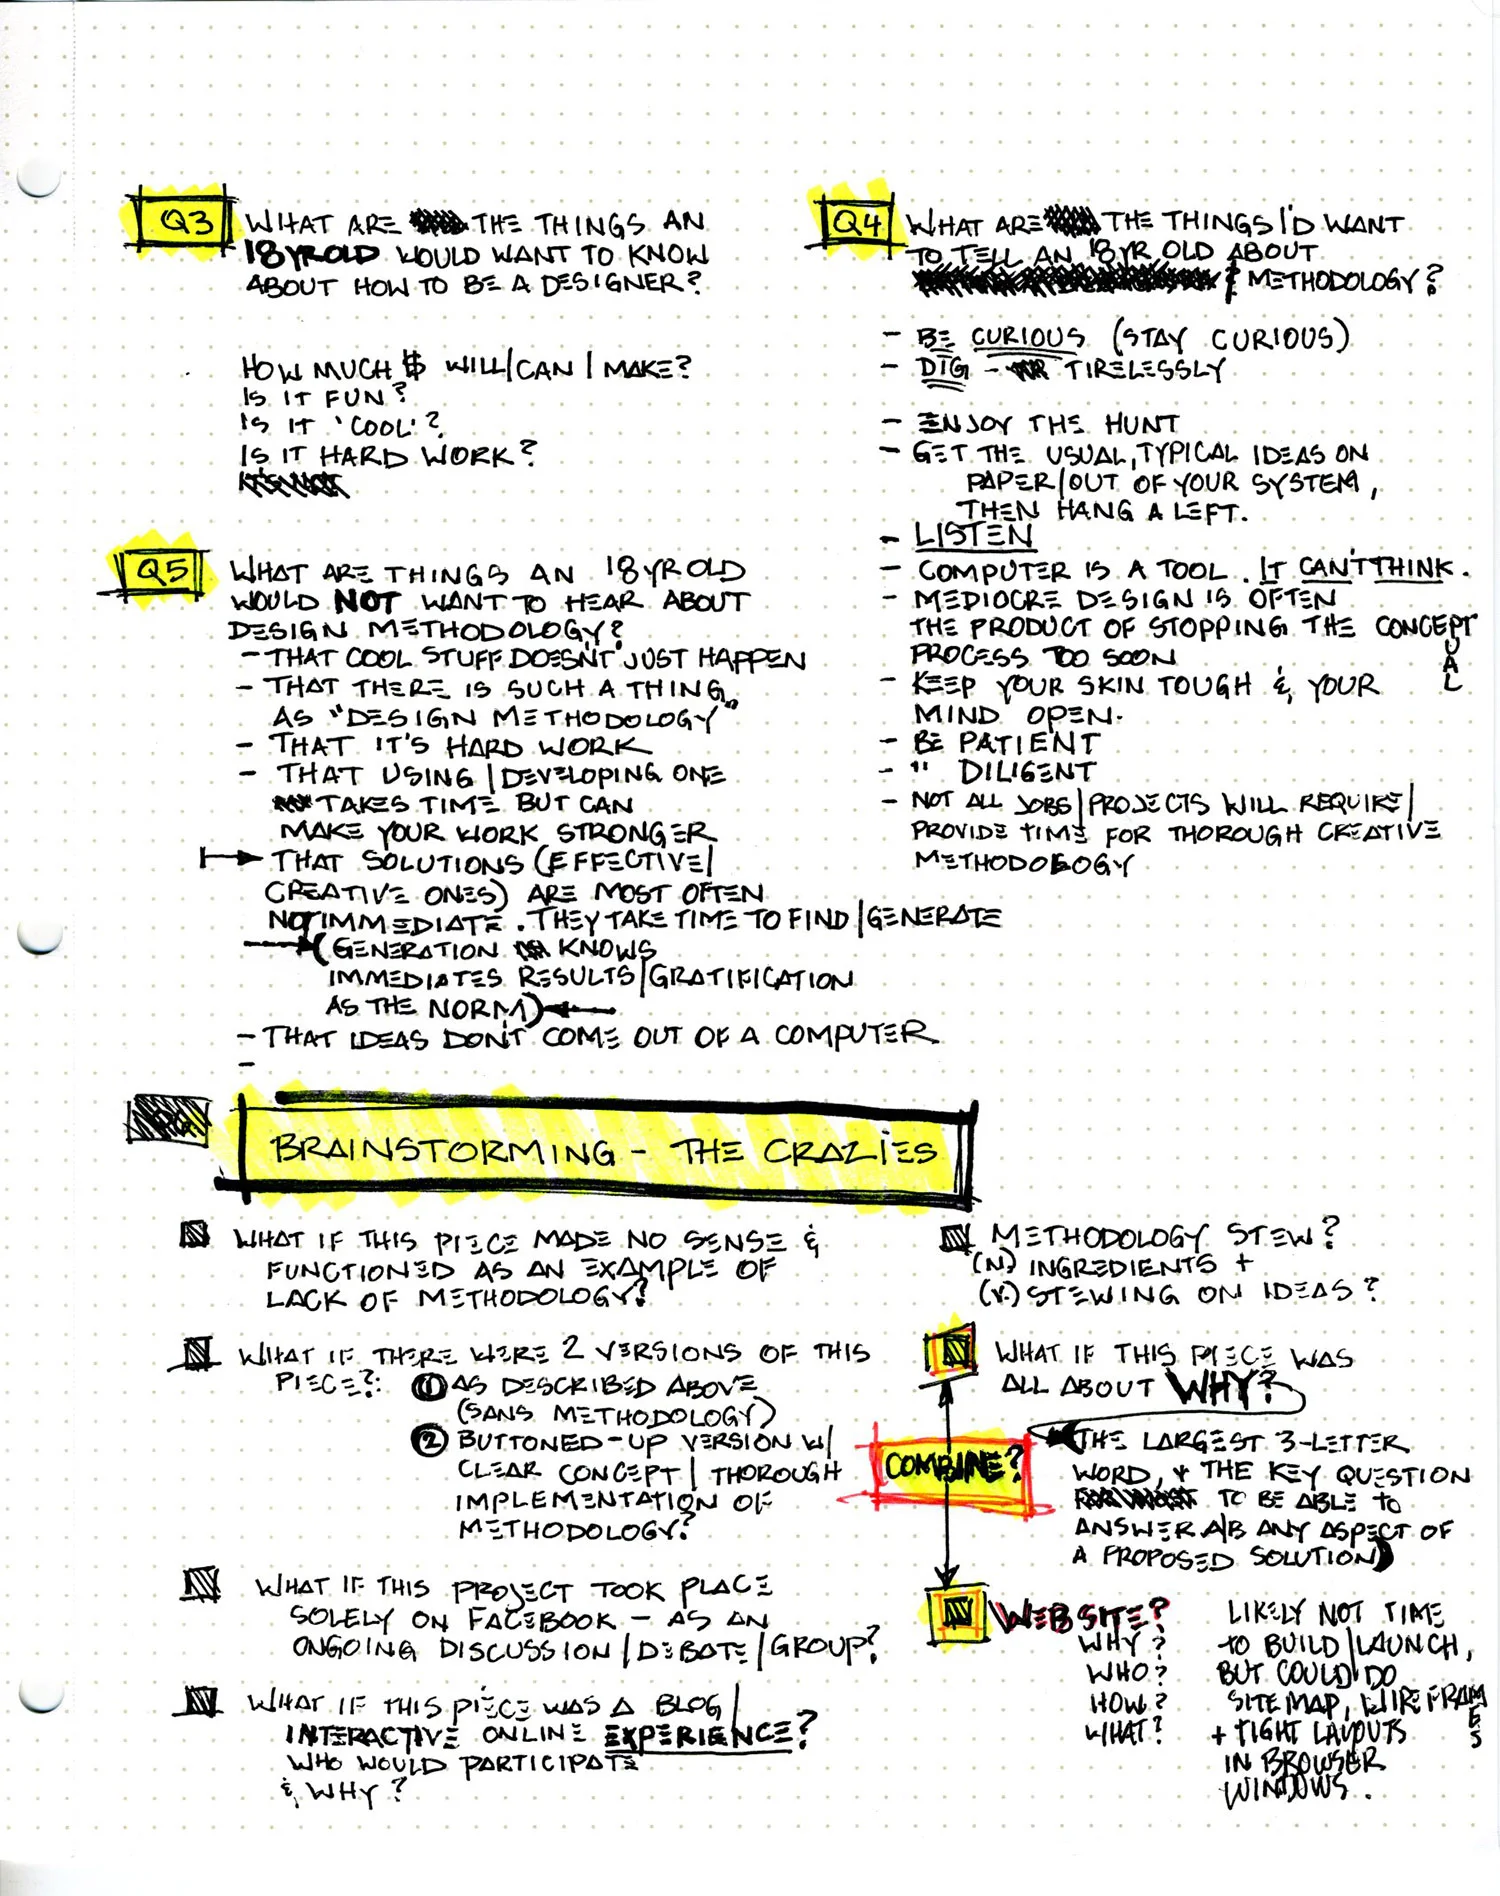 Q3 WHAT ARE THE THINGS AN
18 YR OLD WOULD WANT TO KNOW
ABOUT HOW TO BE A DESIGNER?
HOW MUCH $ WILL/CAN I MAKE?
IS IT FUN?
IS IT 'COOL'?
IS IT HARD WORK?
Q4 WHAT ARE THE THINGS I'D WANT
TO TELL AN 18 YR OLD ABOUT
METHODOLOGY?
- BE CURIOUS (STAY CURIOUS)
- DIG - TIRELESSLY
- ENJOY THE HUNT
- GET THE USUAL, TYPICAL IDEAS ON
PAPER/OUT OF YOUR SYSTEM,
THEN HANG A LEFT.
- LISTEN
- COMPUTER IS A TOOL. IT CAN'T THINK.
- MEDIOCRE DESIGN IS OFTEN
THE PRODUCT OF STOPPING THE CONCEPTUAL
PROCESS TOO SOON
- KEEP YOUR SKIN TOUGH & YOUR
MIND OPEN.
- BE PATIENT
- " DILIGENT
- NOT ALL JOBS/PROJECTS WILL REQUIRE/
PROVIDE TIME FOR THOROUGH CREATIVE
METHODOLOGY
Q5 WHAT ARE THINGS AN 18 YR OLD
WOULD NOT WANT TO HEAR ABOUT
DESIGN METHODOLOGY?
- THAT COOL STUFF DOESN'T JUST HAPPEN
- THAT THERE IS SUCH A THING
AS "DESIGN METHODOLOGY"
- THAT IT'S HARD WORK
- THAT USING/DEVELOPING ONE
TAKES TIME BUT CAN
MAKE YOUR WORK STRONGER
THAT SOLUTIONS (EFFECTIVE/
CREATIVE ONES) ARE MOST OFTEN
NOT IMMEDIATE. THEY TAKE TIME TO FIND/GENERATE
(GENERATION KNOWS
IMMEDIATES RESULTS/GRATIFICATION
AS THE NORM)
- THAT IDEAS DON'T COME OUT OF A COMPUTER.
-
BRAINSTORMING - THE CRAZIES
WHAT IF THIS PIECE MADE NO SENSE &
FUNCTIONED AS AN EXAMPLE OF
LACK OF METHODOLOGY?
WHAT IF THERE WERE 2 VERSIONS OF THIS
PIECE?: 1 AS DESCRIBED ABOVE
(SANS METHODOLOGY)
2 BUTTONED-UP VERSION W/
CLEAR CONCEPT/THOROUGH
IMPLEMENTATION OF
METHODOLOGY?
WHAT IF THIS PROJECT TOOK PLACE
SOLELY ON FACEBOOK - AS AN
ONGOING DISCUSSION/DEBATE/GROUP?
WHAT IF THIS PIECE WAS A BLOG/
INTERACTIVE ONLINE EXPERIENCE?
WHO WOULD PARTICIPATE
& WHY?
METHODOLOGY STEW?
(N.) INGREDIENTS +
(V.) STEWING ON IDEAS?
WHAT IF THIS PIECE WAS
ALL ABOUT WHY?
(THE LARGEST 3-LETTER
WORD, + THE KEY QUESTION
TO BE ABLE TO
ANSWER A/B ANY ASPECT OF
A PROPOSED SOLUTION)
COMBINE?
WEBSITE?
WHY?
WHO?
HOW?
WHAT?
LIKELY NOT TIME
TO BUILD/LAUNCH,
BUT COULD DO
SITE MAP, WIREFRAMES
+ TIGHT LAYOUTS
IN BROWSER
WINDOWS.